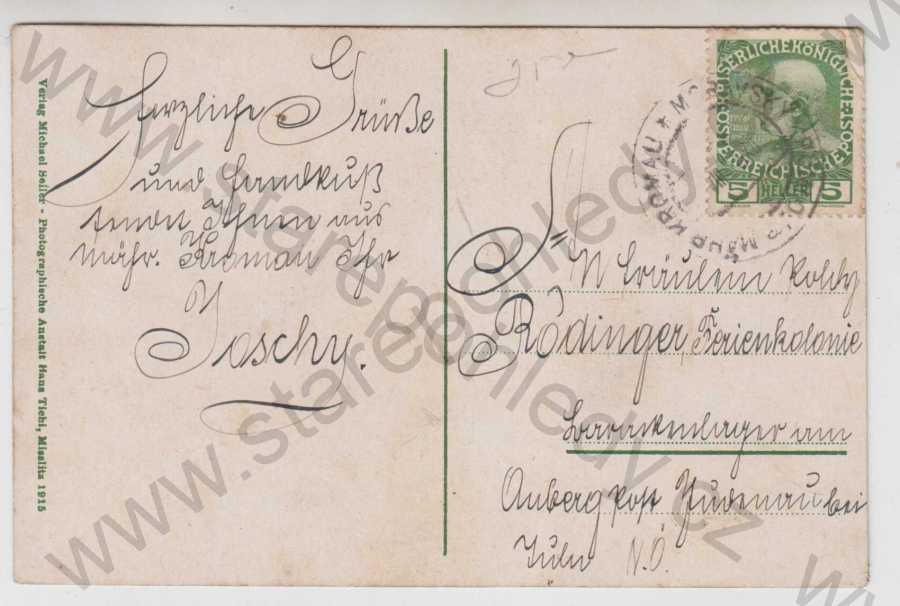 Verlag Michael Heller - Photographische Anstalt Hans Tichi, Misslitz 1915
Herzliche Grüße
und Handkuß
sendet Ihnen aus
mähr. Kromau Ihr
Joschy.
KAISERLICHE KÖNIGLICHE
ÖSTERREICHISCHE POST
5 HELLER 5
MÄHR KROMAU
Fräulein
Rödinger, Ferienkolonie
Barackenlager am
Auberg Post Judenau bei
Tuln N.Ö.
www.starepohledy.cz